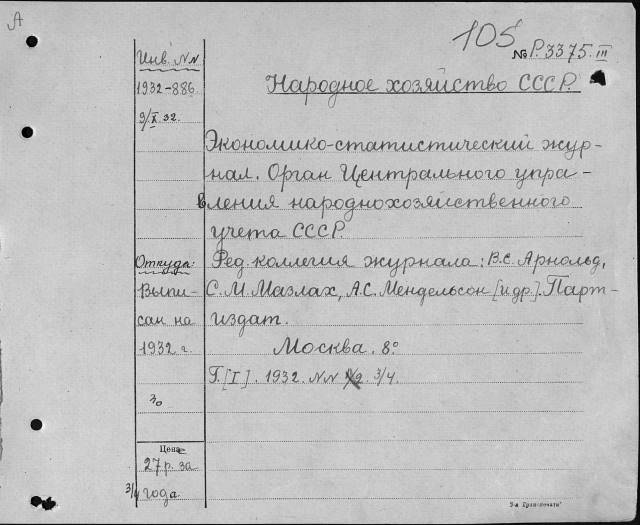 A
105
№ P.3375.III
Инв. NN
Народное хозяйство СССР.
1932-886
9/X 32.
Экономико-статистический жур-
нал. Орган Центрального упра-
вления народнохозяйственного
учета СССР.
Откуда: Ред. коллегия журнала: В.С. Арнольд,
Выпи- С.М. Мазлах, А.С. Мендельсон [и др.]. Парт-
сан на издат.
1932 г. Москва. 8°
Г. [I]. 1932. NN 1/2. 3/4.
Цена
27 р. за
3/4 года